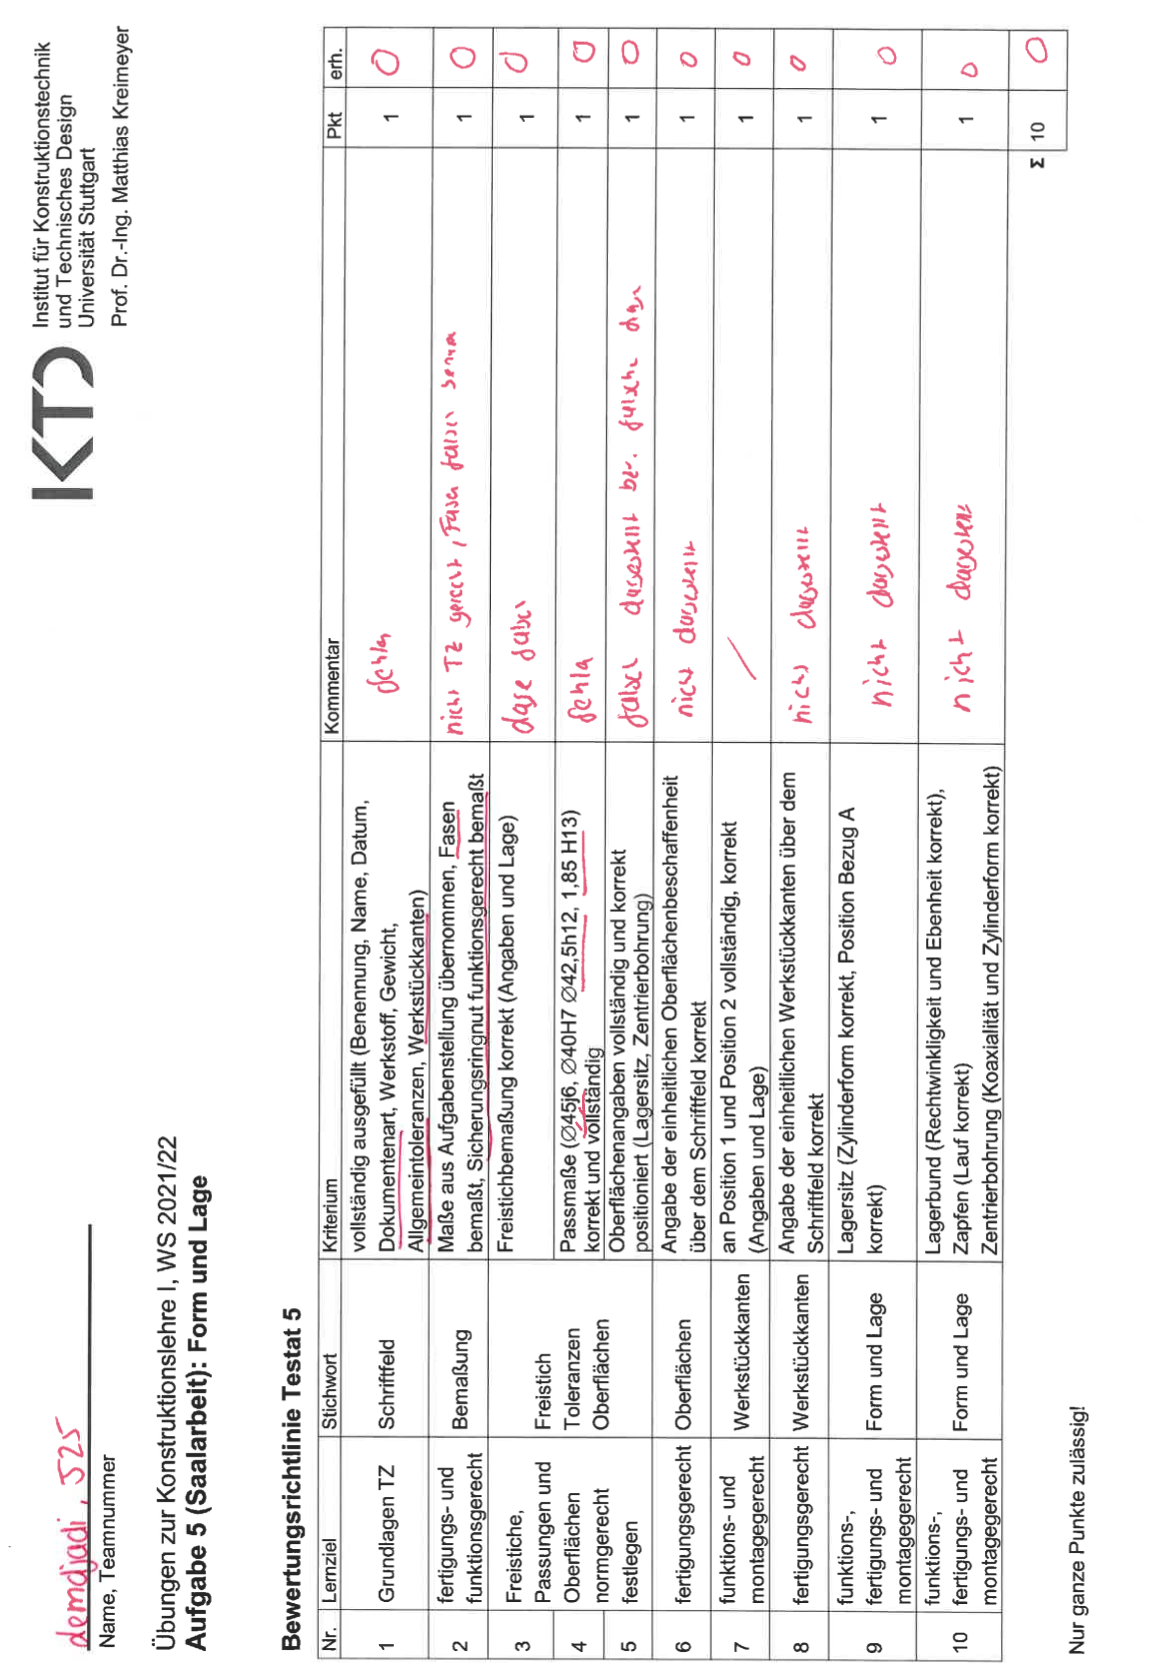 demdjadi, 525
Name, Teamnummer
KTD
Institut für Konstruktionstechnik
und Technisches Design
Universität Stuttgart
Prof. Dr.-Ing. Matthias Kreimeyer
Übungen zur Konstruktionslehre I, WS 2021/22
Aufgabe 5 (Saalarbeit): Form und Lage
Bewertungsrichtlinie Testat 5
Nr. Lernziel Stichwort Kriterium Kommentar Pkt erh.
1 Grundlagen TZ Schriftfeld vollständig ausgefüllt (Benennung, Name, Datum,
Dokumentenart, Werkstoff, Gewicht,
Allgemeintoleranzen, Werkstückkanten) 1 0
2 fertigungs- und
funktionsgerecht Bemaßung Maße aus Aufgabenstellung übernommen, Fasen
bemaßt, Sicherungsringnut funktionsgerecht bemaßt nicht TZ gerecht, Fasen 1 0
3 Freistiche,
Passungen und
Oberflächen
normgerecht
festlegen Freistich
Toleranzen
Oberflächen Freistichbemaßung korrekt (Angaben und Lage) 1 0
4 Passmaße (Ø45j6, Ø40H7 Ø42,5h12, 1,85 H13)
korrekt und vollständig 1 0
5 Oberflächenangaben vollständig und korrekt
positioniert (Lagersitz, Zentrierbohrung) falsch dargestellt bzw. falsche 1 0
6 fertigungsgerecht Oberflächen Angabe der einheitlichen Oberflächenbeschaffenheit
über dem Schriftfeld korrekt nicht dargestellt 1 0
7 funktions- und
montagegerecht Werkstückkanten an Position 1 und Position 2 vollständig, korrekt
(Angaben und Lage) / 1 0
8 fertigungsgerecht Werkstückkanten Angabe der einheitlichen Werkstückkanten über dem
Schriftfeld korrekt nicht dargestellt 1 0
9 funktions-,
fertigungs- und
montagegerecht Form und Lage Lagersitz (Zylinderform korrekt, Position Bezug A
korrekt) nicht dargestellt 1 0
10 funktions-,
fertigungs- und
montagegerecht Form und Lage Lagerbund (Rechtwinkligkeit und Ebenheit korrekt),
Zapfen (Lauf korrekt)
Zentrierbohrung (Koaxialität und Zylinderform korrekt) nicht dargestellt 1 0
Σ 10 0
Nur ganze Punkte zulässig!